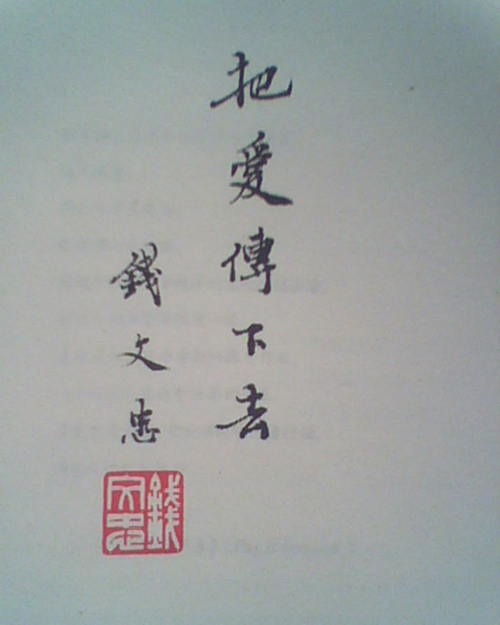 把愛傳下去
錢文忠
錢文忠